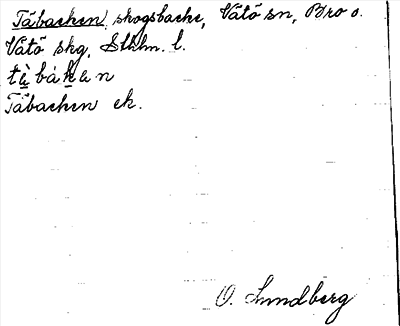 Tåbacken, skogsbacke, Vätö sn, Bro o.
Vätö skg, Sthlm. l.
Tåbacken ek.
O. Lundberg